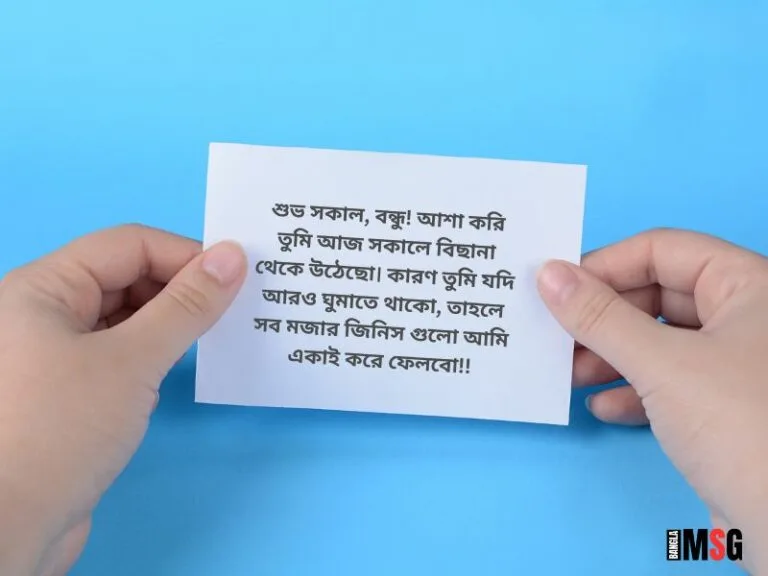 শুভ সকাল, বন্ধু! আশা করি
তুমি আজ সকালে বিছানা
থেকে উঠেছো। কারণ তুমি যদি
আরও ঘুমাতে থাকো, তাহলে
সব মজার জিনিস গুলো আমি
একাই করে ফেলবো!!
BANGLA MSG